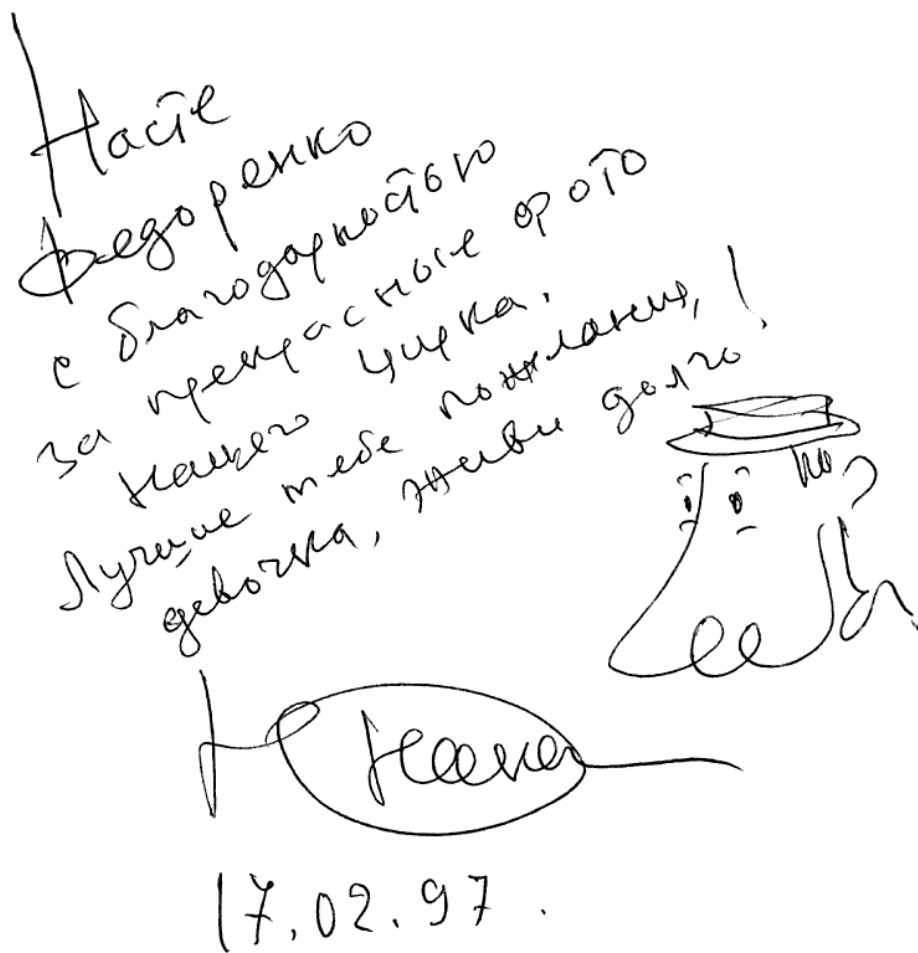 Насте
Федоренко
с благодарностью
за прекрасные фото
нашего цирка.
Лучшие тебе пожелания,
девочка, живи долго!
17.02.97.